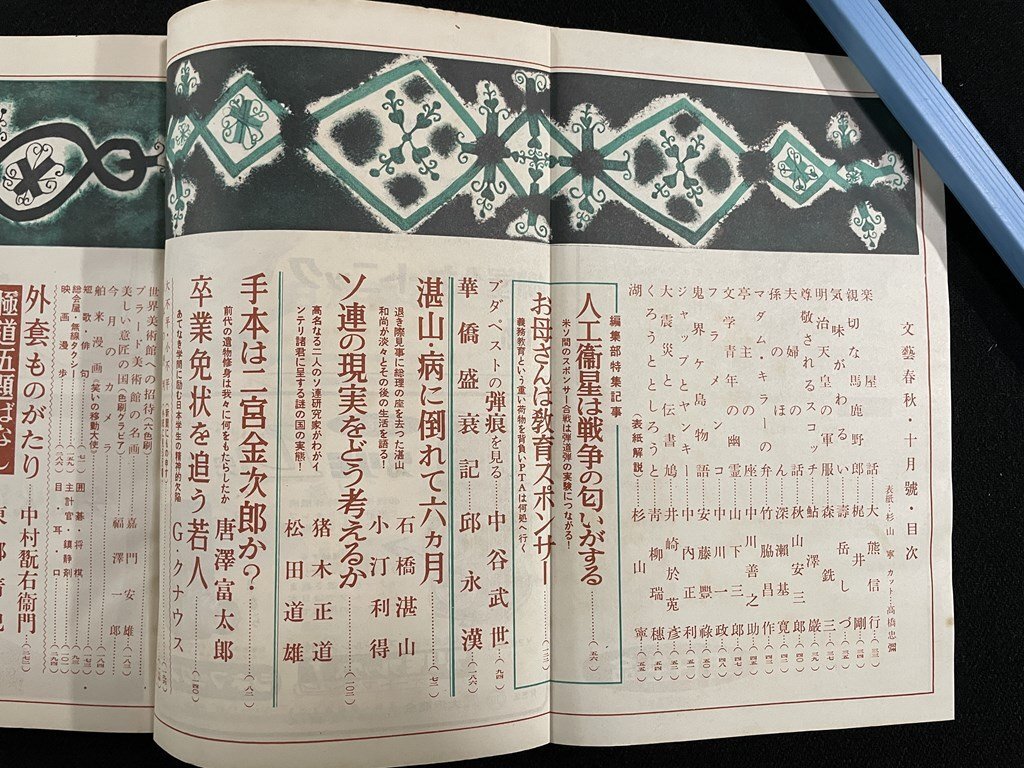 文藝春秋・十月號・目次
表紙…杉山寧 カット…高橋忠彌
楽屋話 大熊信行
親切な馬鹿野郎 梶井剛
気味がわるい 壽岳しづ
明治天皇の軍服 森銑三
尊敬されるコメッチ 鮎澤巖
夫婦の話 秋山安三郎
孫のほん 深瀬基寛
マダム・キラーの弁 竹脇昌作
亭主の座 中川善之助
文学青年の幽霊 山下三郎
フラメンコ 中川一政
鬼界ヶ島物語 安藤豐祿
ジャップとヤンキー 竹内正利
大震災と伝書鳩 井崎於菟彦
くろうとしろうと 青柳瑞穂
湖（表紙解説） 杉山寧
編集部特集記事
人工衛星は戦争の匂いがする（五六）
米ソ間のスポンサー合戦は弾道弾の実験につながる！
お母さんは教育スポンサー
義務教育という重い荷物を背負いＰＴＡは何処へ行く
ブダペストの弾痕を見る 中谷武世（九四）
華僑盛衰記 邱永漢（一八六）
湛山・病に倒れて六ヵ月 石橋湛山（七二）
退き際見事に総理の座を去つた湛山
和尚が淡々とその後の生活を語る！
ソ連の現実をどう考えるか 小汀利得 猪木正道 松田道雄（一〇二）
高名なる二人のソ連研究家がわがイ
ンテリ諸君に呈する謎の国の実態！
手本は二宮金次郎か？ 唐澤富太郎（八二）
前代の遺物修身は我々に何をもたらしたか
卒業免状を追う若人 Ｇ・クナウス（一四〇）
あてなき学問に励む日本学生の精神的欠陥
世界美術館への招待（六色刷）
プラード美術館の名画
美しい意匠の国（色刷グラビア）
今月のカメラ 嘉門安雄（八三）
舶来漫画（笑いの移動大使） 福澤一郎
短歌・俳句 囲碁・将棋
総会屋・無線タクシー 主計官・鎮静剤
映画漫歩 目・耳・口
外套ものがたり 中村翫右衞門
極道五題ばなし